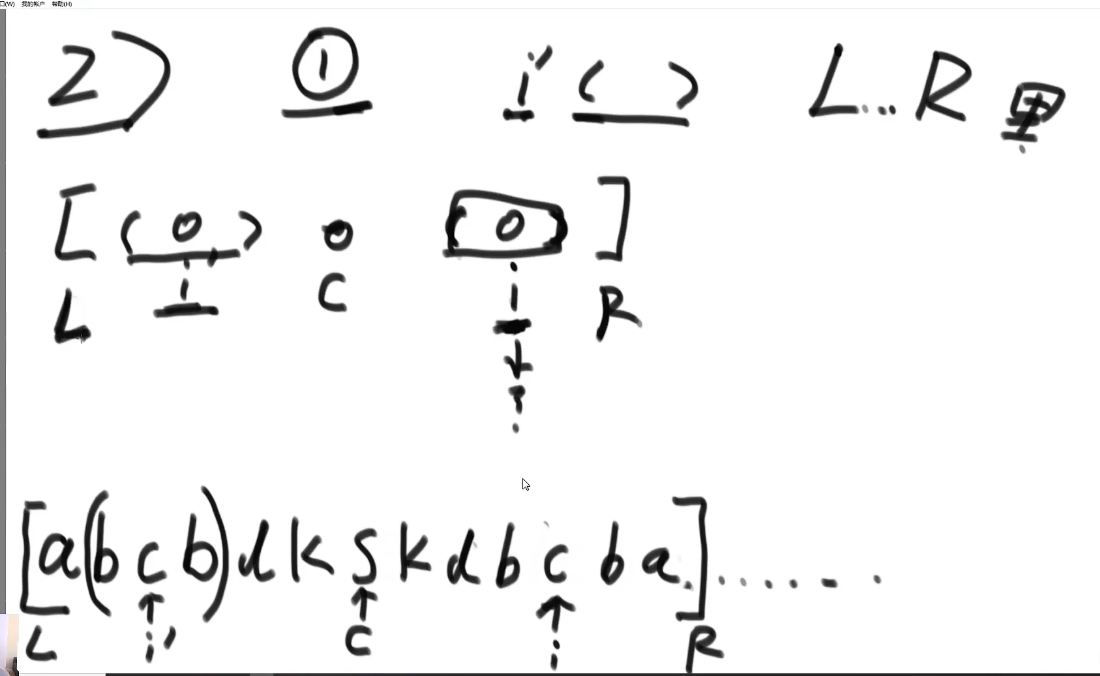 (W) 我的帐户 帮助(H)
2) ① i' ( ) L...R 里
[ ( O ) O ( O ) ]
L i C i R
?
[ a ( b c b ) d k s k d b c b a ] ......
L i' C i R